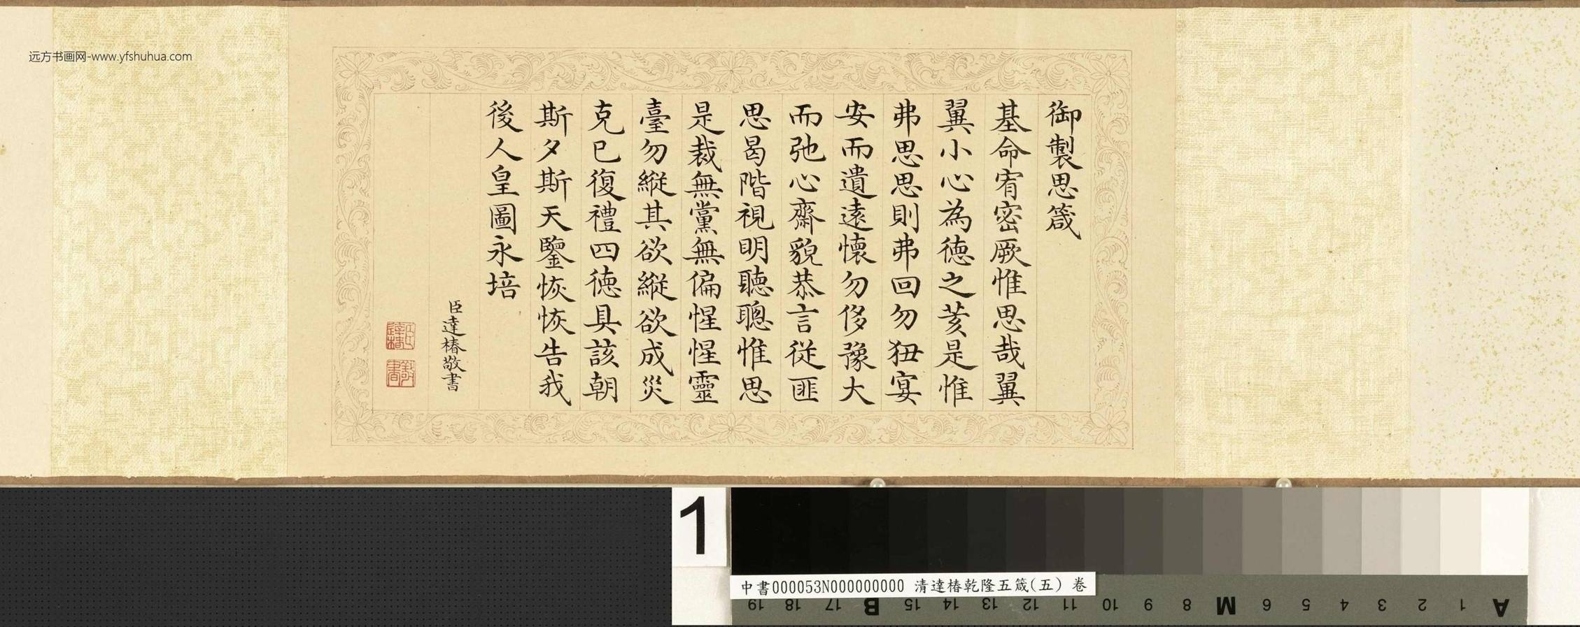 远方书画网-www.yfshuhua.com
御製思箴
基命宥密厥惟思哉翼
翼小心為德之荄是惟
弗思思則弗回勿狃宴
安而遺遠懷勿侈豫大
而弛心齋貌恭言從匪
思曷階視明聽聰惟思
是裁無黨無偏惺惺靈
臺勿縱其欲縱欲成災
克己復禮四德具該朝
斯夕斯天鑒恢恢告我
後人皇圖永培
臣達椿敬書
1
中書000053N000000000 清達椿乾隆五箴(五) 卷
19 18 17 B 15 14 13 12 11 10 9 8 M 6 5 4 3 2 1 A